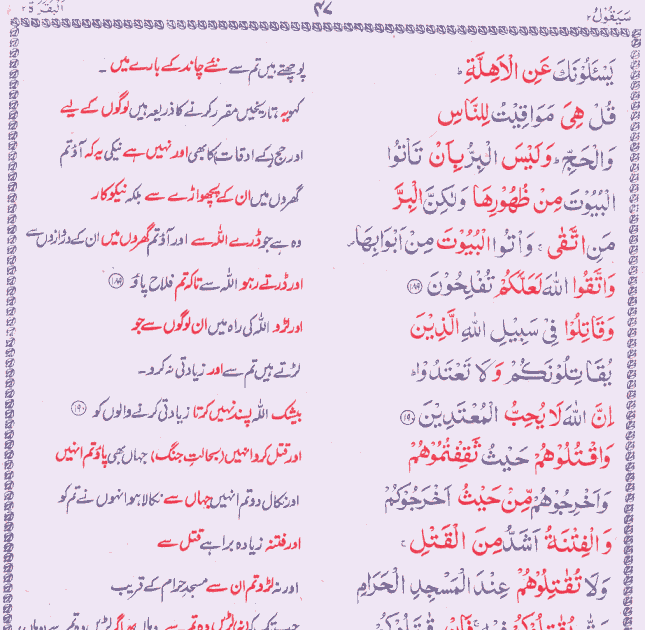 سَيَقُوْلُ ٢
٤٧
اَلْبَقَرَة ٢
يَسْـَٔلُوْنَكَ عَنِ الْاَهِلَّةِ ؕ
پوچھتے ہیں تم سے نئے چاند کے بارے میں ۔
قُلْ هِيَ مَوَاقِيْتُ لِلنَّاسِ
کہو یہ تاریخیں مقرر کرنے کا ذریعہ ہیں لوگوں کے لیے
وَالْحَجِّ ؕ وَلَيْسَ الْبِرُّ بِاَنْ تَاْتُوا
اور حج (کے اوقات) کا بھی اور نہیں ہے نیکی یہ کہ آؤ تم
الْبُيُوْتَ مِنْ ظُهُوْرِهَا وَلٰكِنَّ الْبِرَّ
گھروں میں ان کے پچھواڑے سے بلکہ نیکوکار
مَنِ اتَّقٰى ۚ وَاْتُوا الْبُيُوْتَ مِنْ اَبْوَابِهَا ۪
وہ ہے جو ڈرے اللہ سے اور آؤ تم گھروں میں ان کے دروازوں سے
وَاتَّقُوا اللهَ لَعَلَّكُمْ تُفْلِحُوْنَ ﴿١٨٩﴾
اور ڈرتے رہو اللہ سے تاکہ تم فلاح پاؤ ﴿١٨٩﴾
وَقَاتِلُوْا فِيْ سَبِيْلِ اللهِ الَّذِيْنَ
اور لڑو اللہ کی راہ میں ان لوگوں سے جو
يُقَاتِلُوْنَكُمْ وَلَا تَعْتَدُوْا ؕ
لڑتے ہیں تم سے اور زیادتی نہ کرو۔
اِنَّ اللهَ لَا يُحِبُّ الْمُعْتَدِيْنَ ﴿١٩٠﴾
بیشک اللہ پسند نہیں کرتا زیادتی کرنے والوں کو ﴿١٩٠﴾
وَاقْتُلُوْهُمْ حَيْثُ ثَقِفْتُمُوْهُمْ
اور قتل کرو انہیں (بحالتِ جنگ) جہاں بھی پاؤ تم انہیں
وَاَخْرِجُوْهُمْ مِّنْ حَيْثُ اَخْرَجُوْكُمْ
اور نکال دو تم انہیں جہاں سے نکالا ہو انہوں نے تم کو
وَالْفِتْنَةُ اَشَدُّ مِنَ الْقَتْلِ ۚ
اور فتنہ زیادہ برا ہے قتل سے
وَلَا تُقٰتِلُوْهُمْ عِنْدَ الْمَسْجِدِ الْحَرَامِ
اور نہ لڑو تم ان سے مسجدِ حرام کے قریب